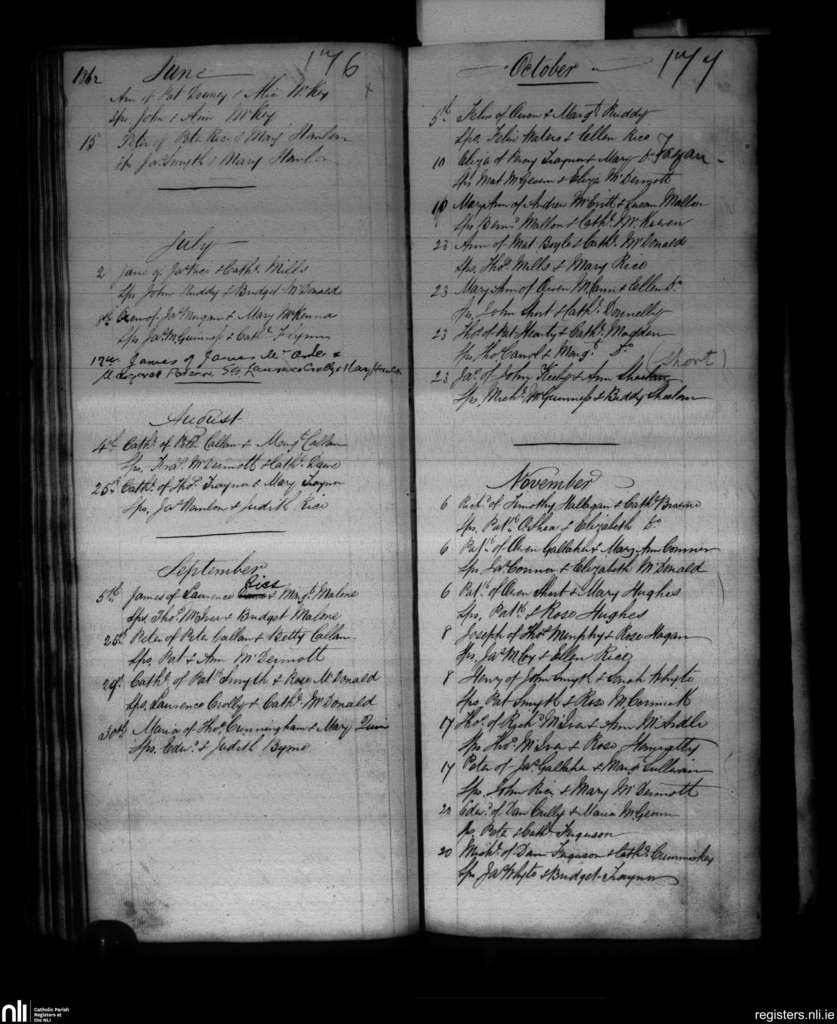 1862 June 176
Ann of Pat Downey & Alice McKey
Sps John & Ann McKey
15 Peter of Peter Rice & Mary Hanlon
Sps Jas Smyth & Mary Hanlon
July
2 Jane of Jas Rice & Cathe Mills
Sps John Ruddy & Bridget McDonald
8th Owen of Jas Morgan & Mary McKenna
Sps Jas McGuinness & Cathe Flynn
13th James of James McArdle &
Margaret Sps Laurence Crolly & Mary Hanlon
August
4th Cathe of Peter Callan & Margt Callan
Sps Fras McDermott & Cathe
25th Cathe of Thos Traynor & Mary Traynor
Sps, Jas Hanlon & Judith Rice
September
5th James of Laurence Rice & Margt Malone
Sps Thos McIver & Bridget Malone
25th Peter of Peter Callan & Betty Callan
Sps, Pat & Ann McDermott
29th Cathe of Patk Smyth & Rose McDonald
Sps Laurence Crolly & Cathe McDonald
30th Maria of Thos Cunningham & Mary Quin
Sps, Edwd & Judith Byrne
October 177
5th Felix of Owen & Margt Ruddy
Sps, Felix Waters & Ellen Rice
10 Eliza of Traynor & Mary Do Fagan
Sps Mat McGeven & Eliza McDermott
19 Mary Ann of Andrew McCritt & Susan Mallon
Sps Bernd Mallon & Cathe McKeven
23 Ann of Mat Boyle & Cathe McDonald
Sps, Thos Mills & Mary Rice
23 Mary Ann of Owen McCann & Ellen Do
Sps, John Short & Cathe Donnelly
23 Thos of Pat Hearty & Cathe Madden
Sps Thos Carrol & Margt Do
23 Jas of John Keely & Ann (Short)
Sps, Michl McGuinness & Biddy
November
6 Richd of Timothy Hallagan & Cathe
Sps, Patk O'Shea & Elizabeth Do
6 Patk of Owen Gallaher & Mary Ann Connor
Sps Jas Connor & Elizabeth McDonald
6 Patk of Owen Short & Mary Hughes
Sps, Patk & Rose Hughes
8 Joseph of Thos Murphy & Rose Hagan
Sps, Jas McCoy & Ellen Rice
8 Henry of John Smyth & Sarah Whyte
Sps, Pat Smyth & Rose McCormick
17 Thos of Richd McIver & Ann McArdle
Sps Thos McIver & Rose
17 Peter of Jas Gallaher & Margt Sullivan
Sps, John Rice & Mary McDermott
20 Edwd of Dan Crilly & Maria McGeown
Sps, Peter & Cathe Ferguson
20 Michl of Dan Ferguson & Cathe Cummiskey
Sps Jas Whyte & Bridget Traynor
nli Catholic Parish
Registers at
the NLI
registers.nli.ie